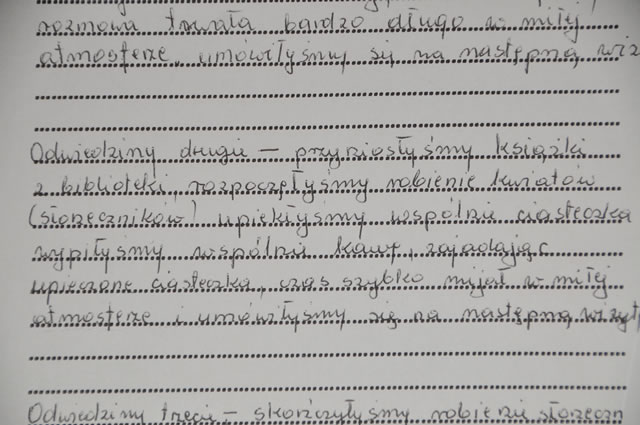 rozmowa trwała bardzo długo w miłej
atmosferze, umówiłyśmy się na następną wiz
Odwiedziny drugie – przyniosłyśmy książki
z biblioteki, rozpoczęłyśmy robienie kwiatów
(słoneczników) upiekłyśmy wspólnie ciasteczka
wypiłyśmy wspólnie kawę, zajadając
upieczone ciasteczka, czas szybko mijał w miłej
atmosferze i umówiłyśmy się na następną wizyt
Odwiedziny trzecie – skończyłyśmy robienie słoneczn